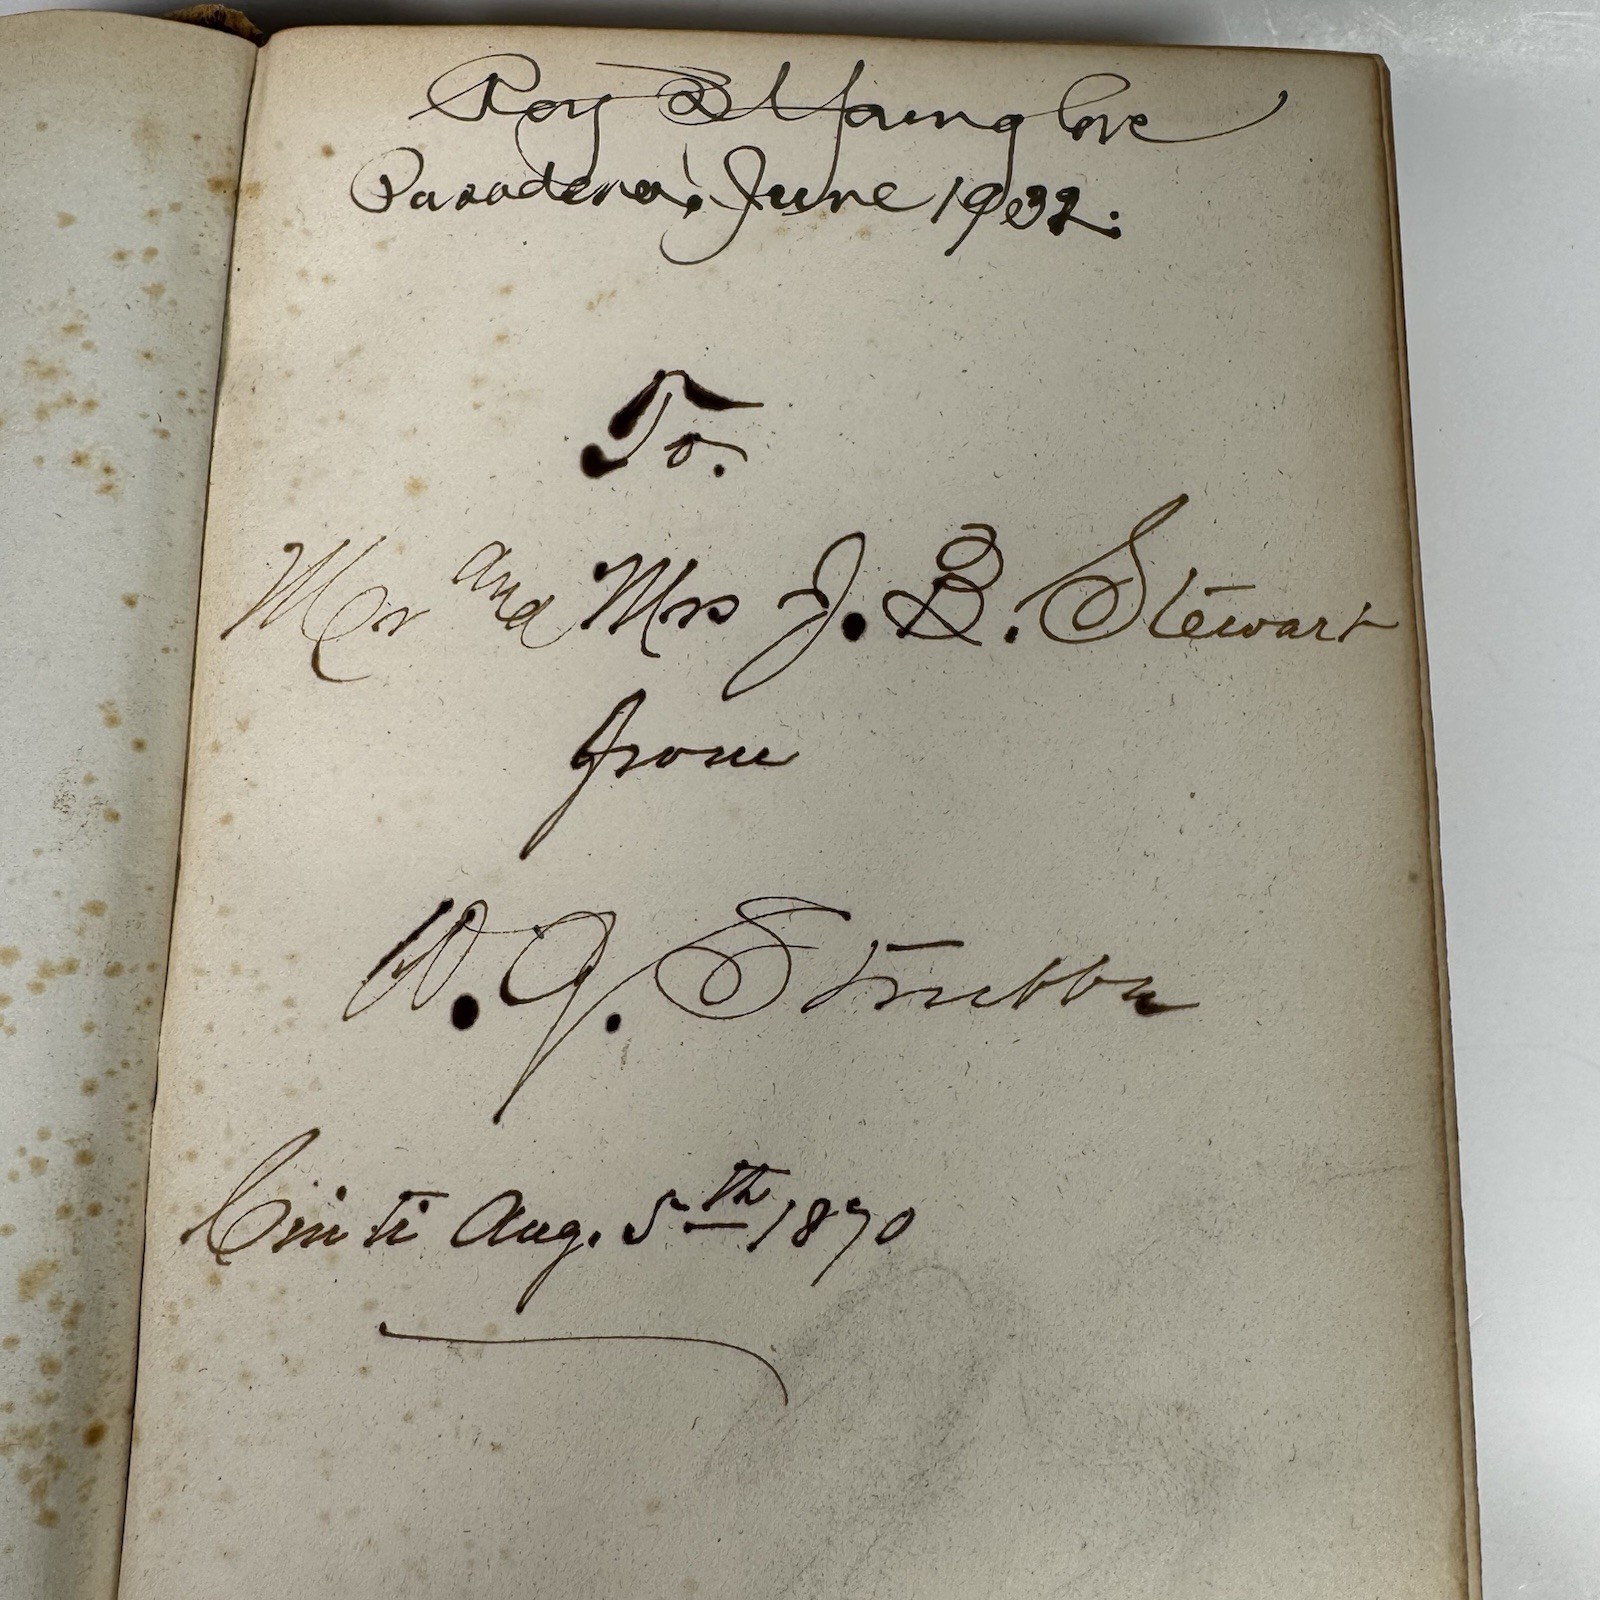 Roy B Younglove
Pasadena, June 1932.
To.
Mr and Mrs J. B. Stewart
from
W. J. Strubbe
Cinti Aug. 5th 1870